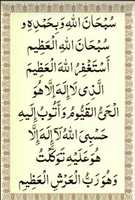 سُبْحَانَ اللهِ وَبِحَمْدِهِ
سُبْحَانَ اللهِ الْعَظِيمِ
أَسْتَغْفِرُ اللهَ الْعَظِيمَ
الَّذِي لَا إِلَهَ إِلَّا هُوَ
الْحَيُّ الْقَيُّومُ وَأَتُوبُ إِلَيْهِ
حَسْبِيَ اللهُ لَآ إِلَهَ إِلَّا
هُوَ عَلَيْهِ تَوَكَّلْتُ
وَهُوَ رَبُّ الْعَرْشِ الْعَظِيمِ